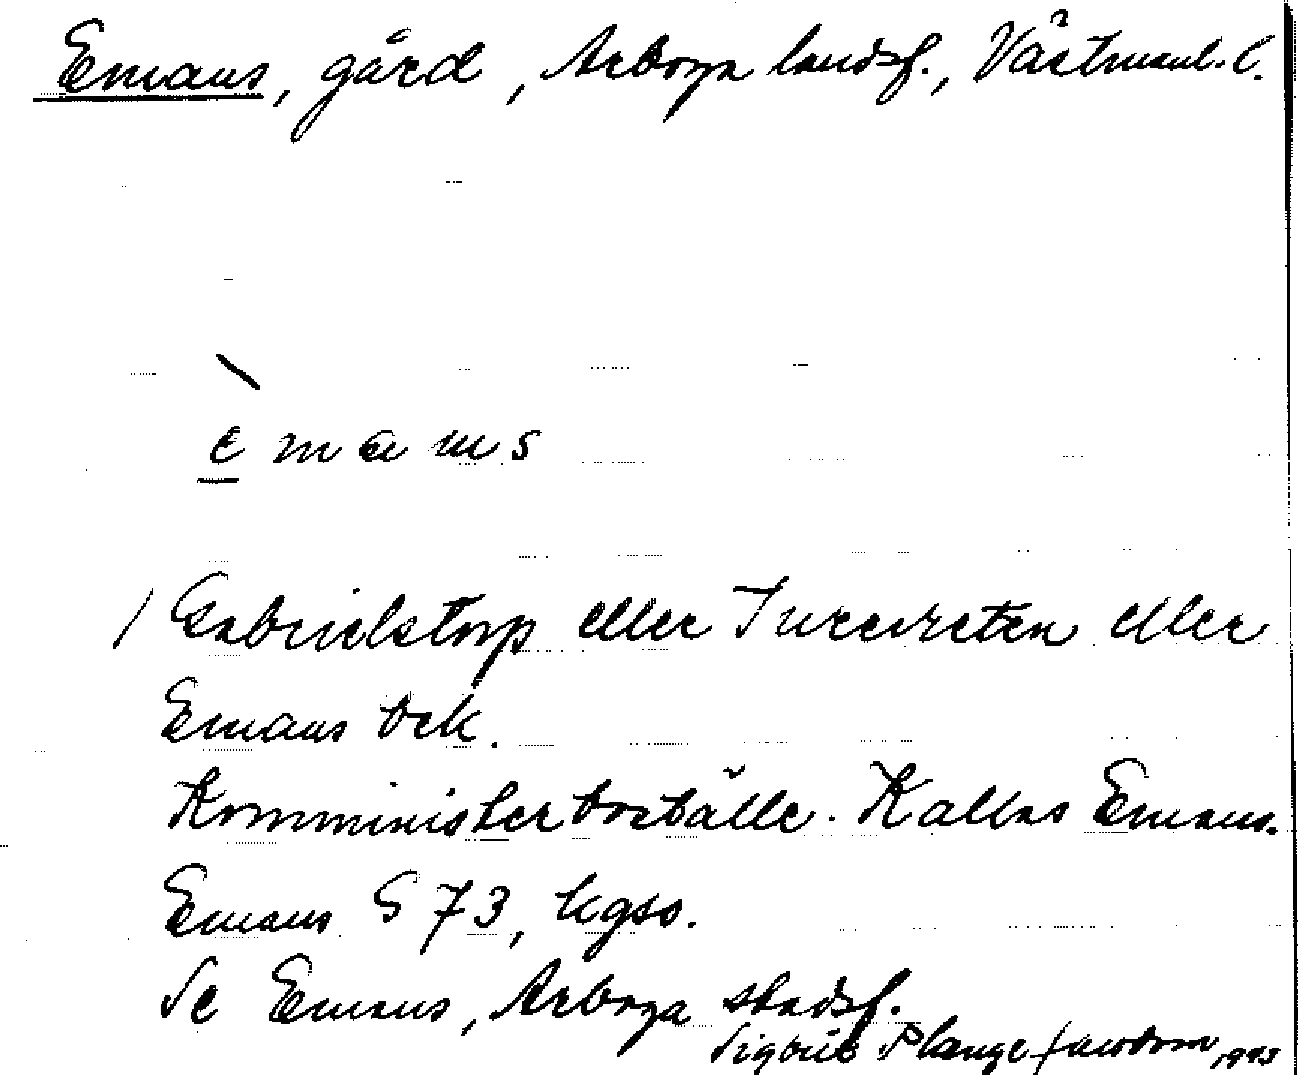 Emaus, gård, Arboga landsf., Västmanl. l.
e m a u s
1 Gabrielstorp eller eller
Emaus bek.
Komministerboställe. Kallas Emaus.
Emaus S 73, kgso.
Se Emaus, Arboga stadsf.
Sigbrit Plænge Jacobson